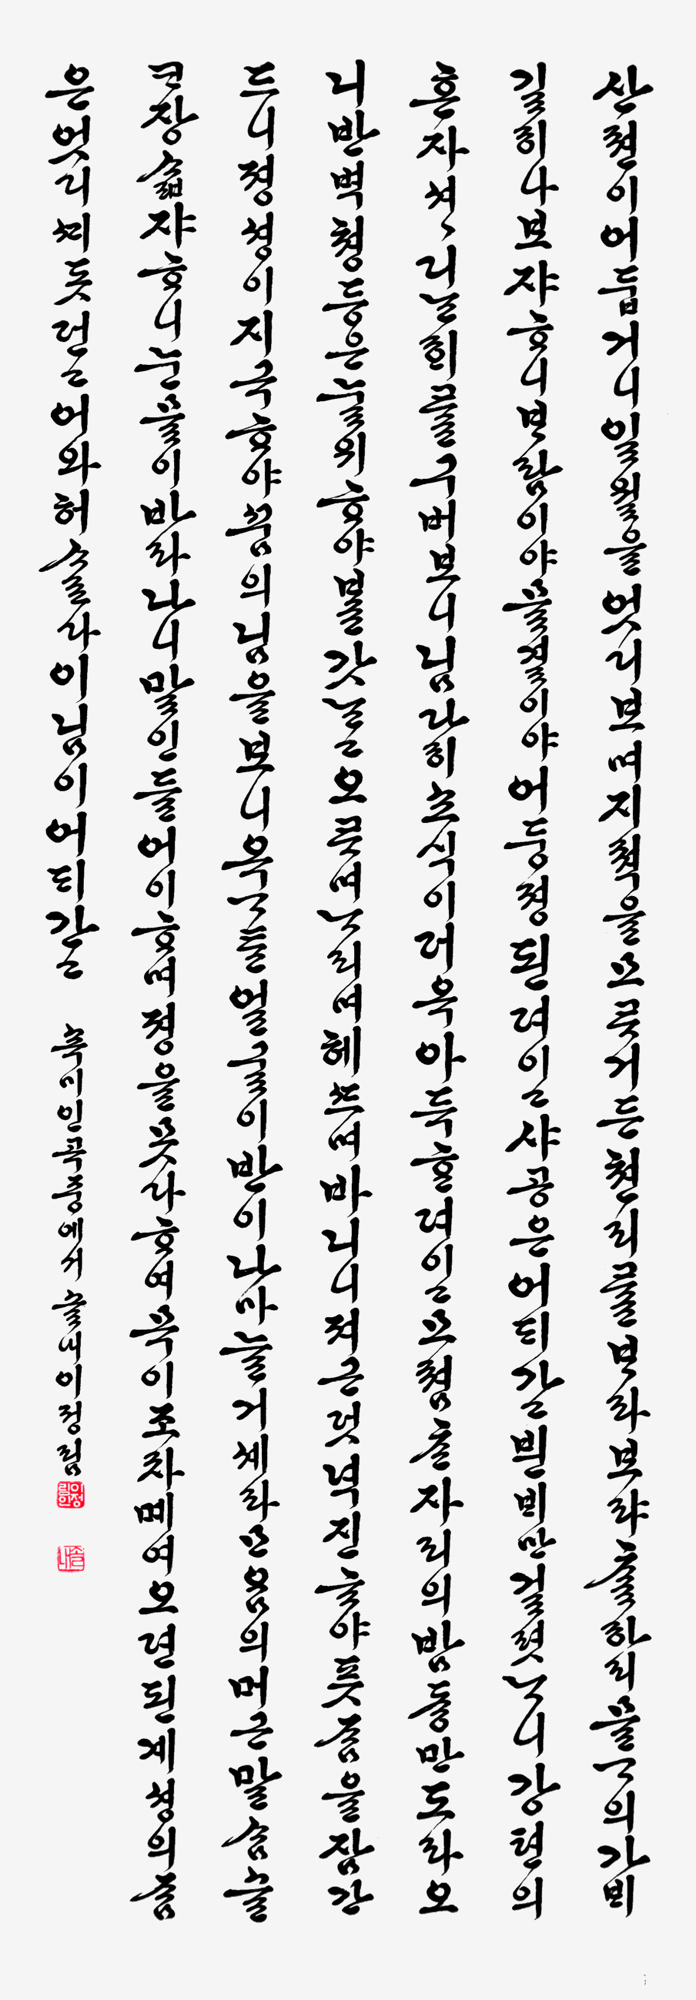 산쳔이어둡거니일월을엇디보며지쳑을모ᄅ거든쳔리ᄅᆯᄇ라보랴ᄎᆞᆯ하리믈ᄀᆞ의가ᄇᆡ
길히나보쟈ᄒᆞ니ᄇᆞ람이야믈결이야어둥졍된뎌이고샤공은어ᄃᆡ가고븬ᄇᆡ만걸렷ᄂᆞ니강텬의
혼자셔셔디ᄂᆞᆫᄒᆡᄅᆞᆯ구버보니님다히쇼식이더욱아득ᄒᆞᆫ뎌이고모쳠ᄎᆞᆫ자리의밤듕만도라오
니반벽쳥등은눌위ᄒᆞ야ᄇᆞᆯ갓ᄂᆞᆫ고오ᄅᆞ며ᄂᆞ리며헤ᄯᅳ며바니니져근덧녁진ᄒᆞ야픗ᄌᆞᆷ을잠간
드니졍셩이지극ᄒᆞ야ᄭᅮᆷ의님을보니옥ᄀᆞᄐᆞᆫ얼굴이반이나마늘거셰라ᄆᆞᄋᆞᆷ의머근말ᄉᆞᆷ슬
ᄏᆞ장ᄉᆞᆲ쟈ᄒᆞ니눈믈이바라나니말인들어이ᄒᆞ며졍을못다ᄒᆞ여목이조차메여오뎐된계셩의ᄌᆞᆷ
은엇디ᄭᆡ돗던고어와허ᄉᆞ로다이님이어ᄃᆡ간고 속미인곡중에서 솔내이정림